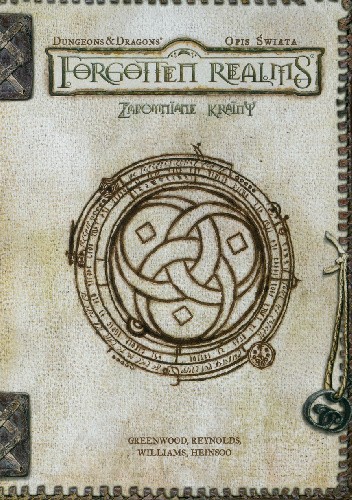 Dungeons & Dragons® Opis Świata
Forgotten Realms®
Zapomniane Krainy
Greenwood, Reynolds,
Williams, Heinsoo